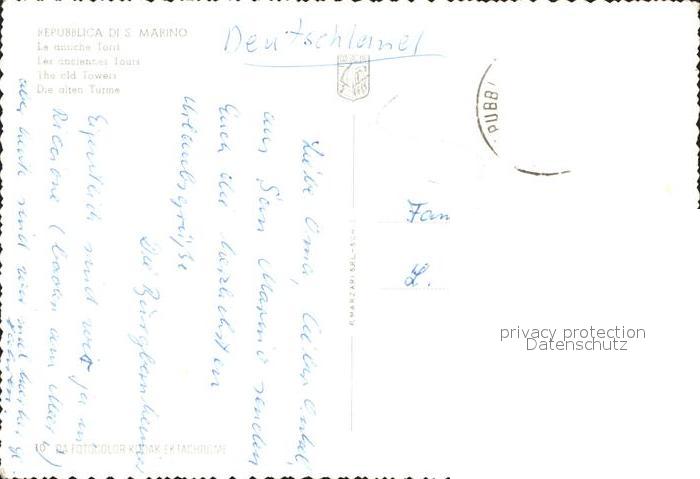 REPUBBLICA DI S. MARINO
Le antiche Torri
Les anciennes Tours
The old Towers
Die alten Türme
Deutschland
PUBB
Liebe Oma, lieber Onkel,
aus San Marino senden
Euch die herzlichsten
Urlaubsgrüße
Die Burgbernheimer
Eigentlich sind wir ja in
Riccione (baden am Meer)
aber heute sind wir mal hierher ge
fahren
Fam
L.
privacy protection
Datenschutz
10 DA FOTOCOLOR KODAK EKTACHROME